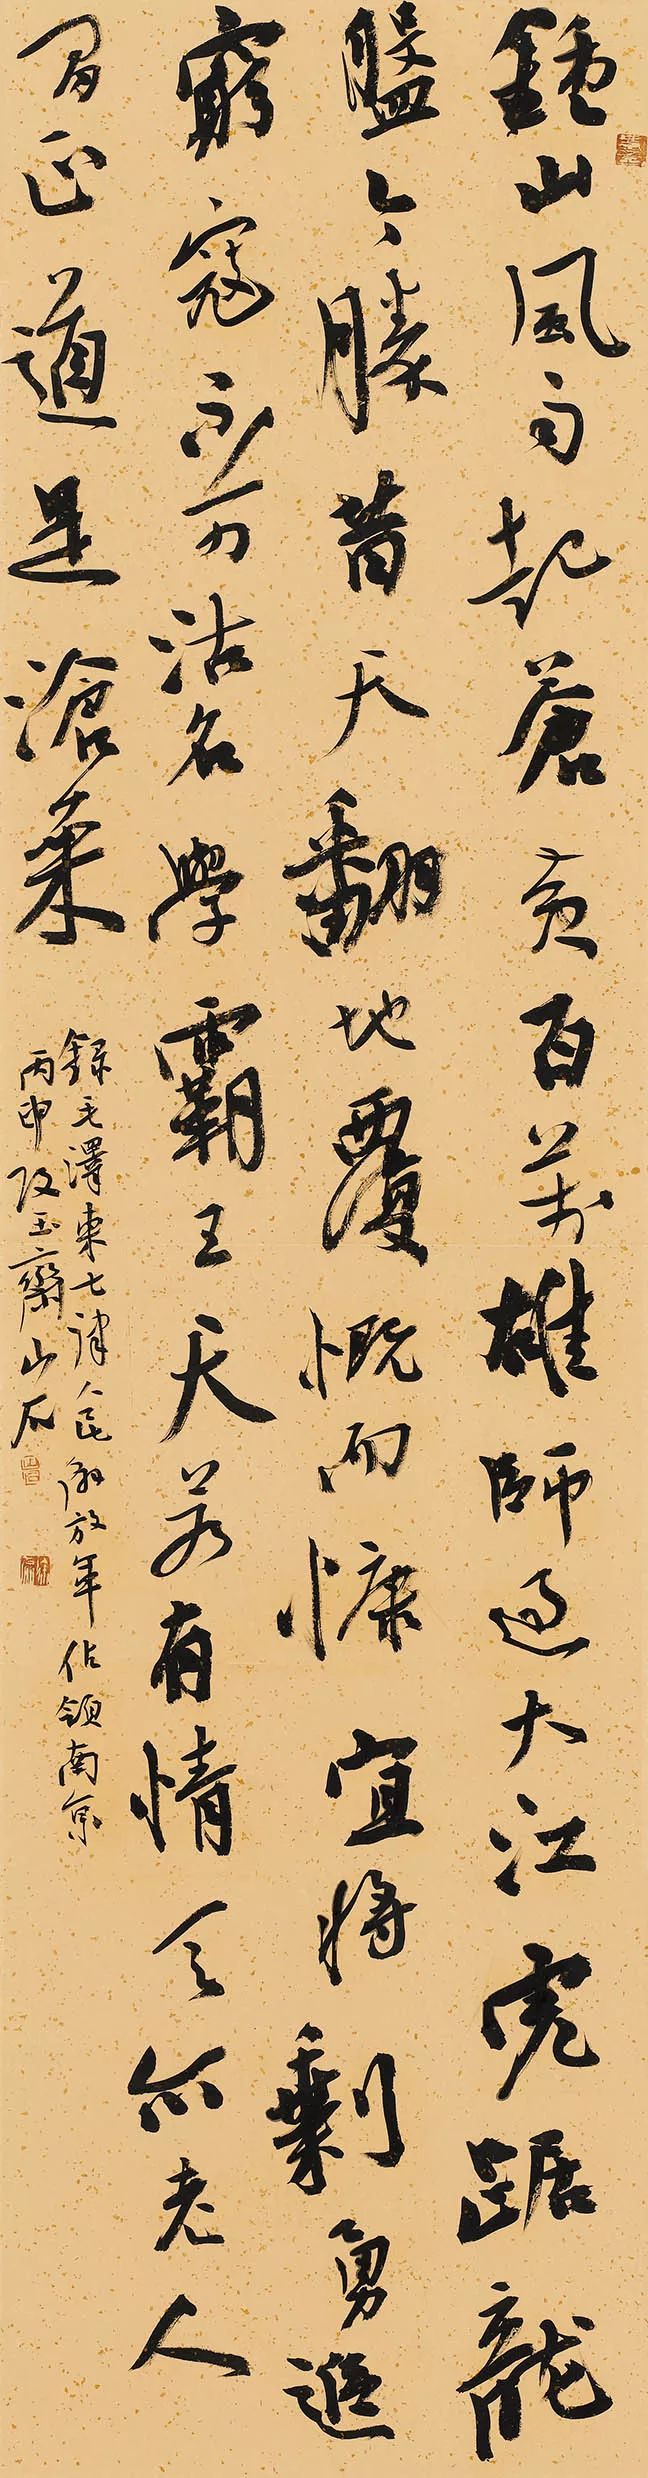 鍾山風雨起蒼黃百萬雄師過大江虎踞龍
盤今勝昔天翻地覆慨而慷宜將剩勇追
窮寇不可沽名學霸王天若有情天亦老人
間正道是滄桑
錄毛澤東七律人民解放軍佔領南京
丙申攻玉齋山石